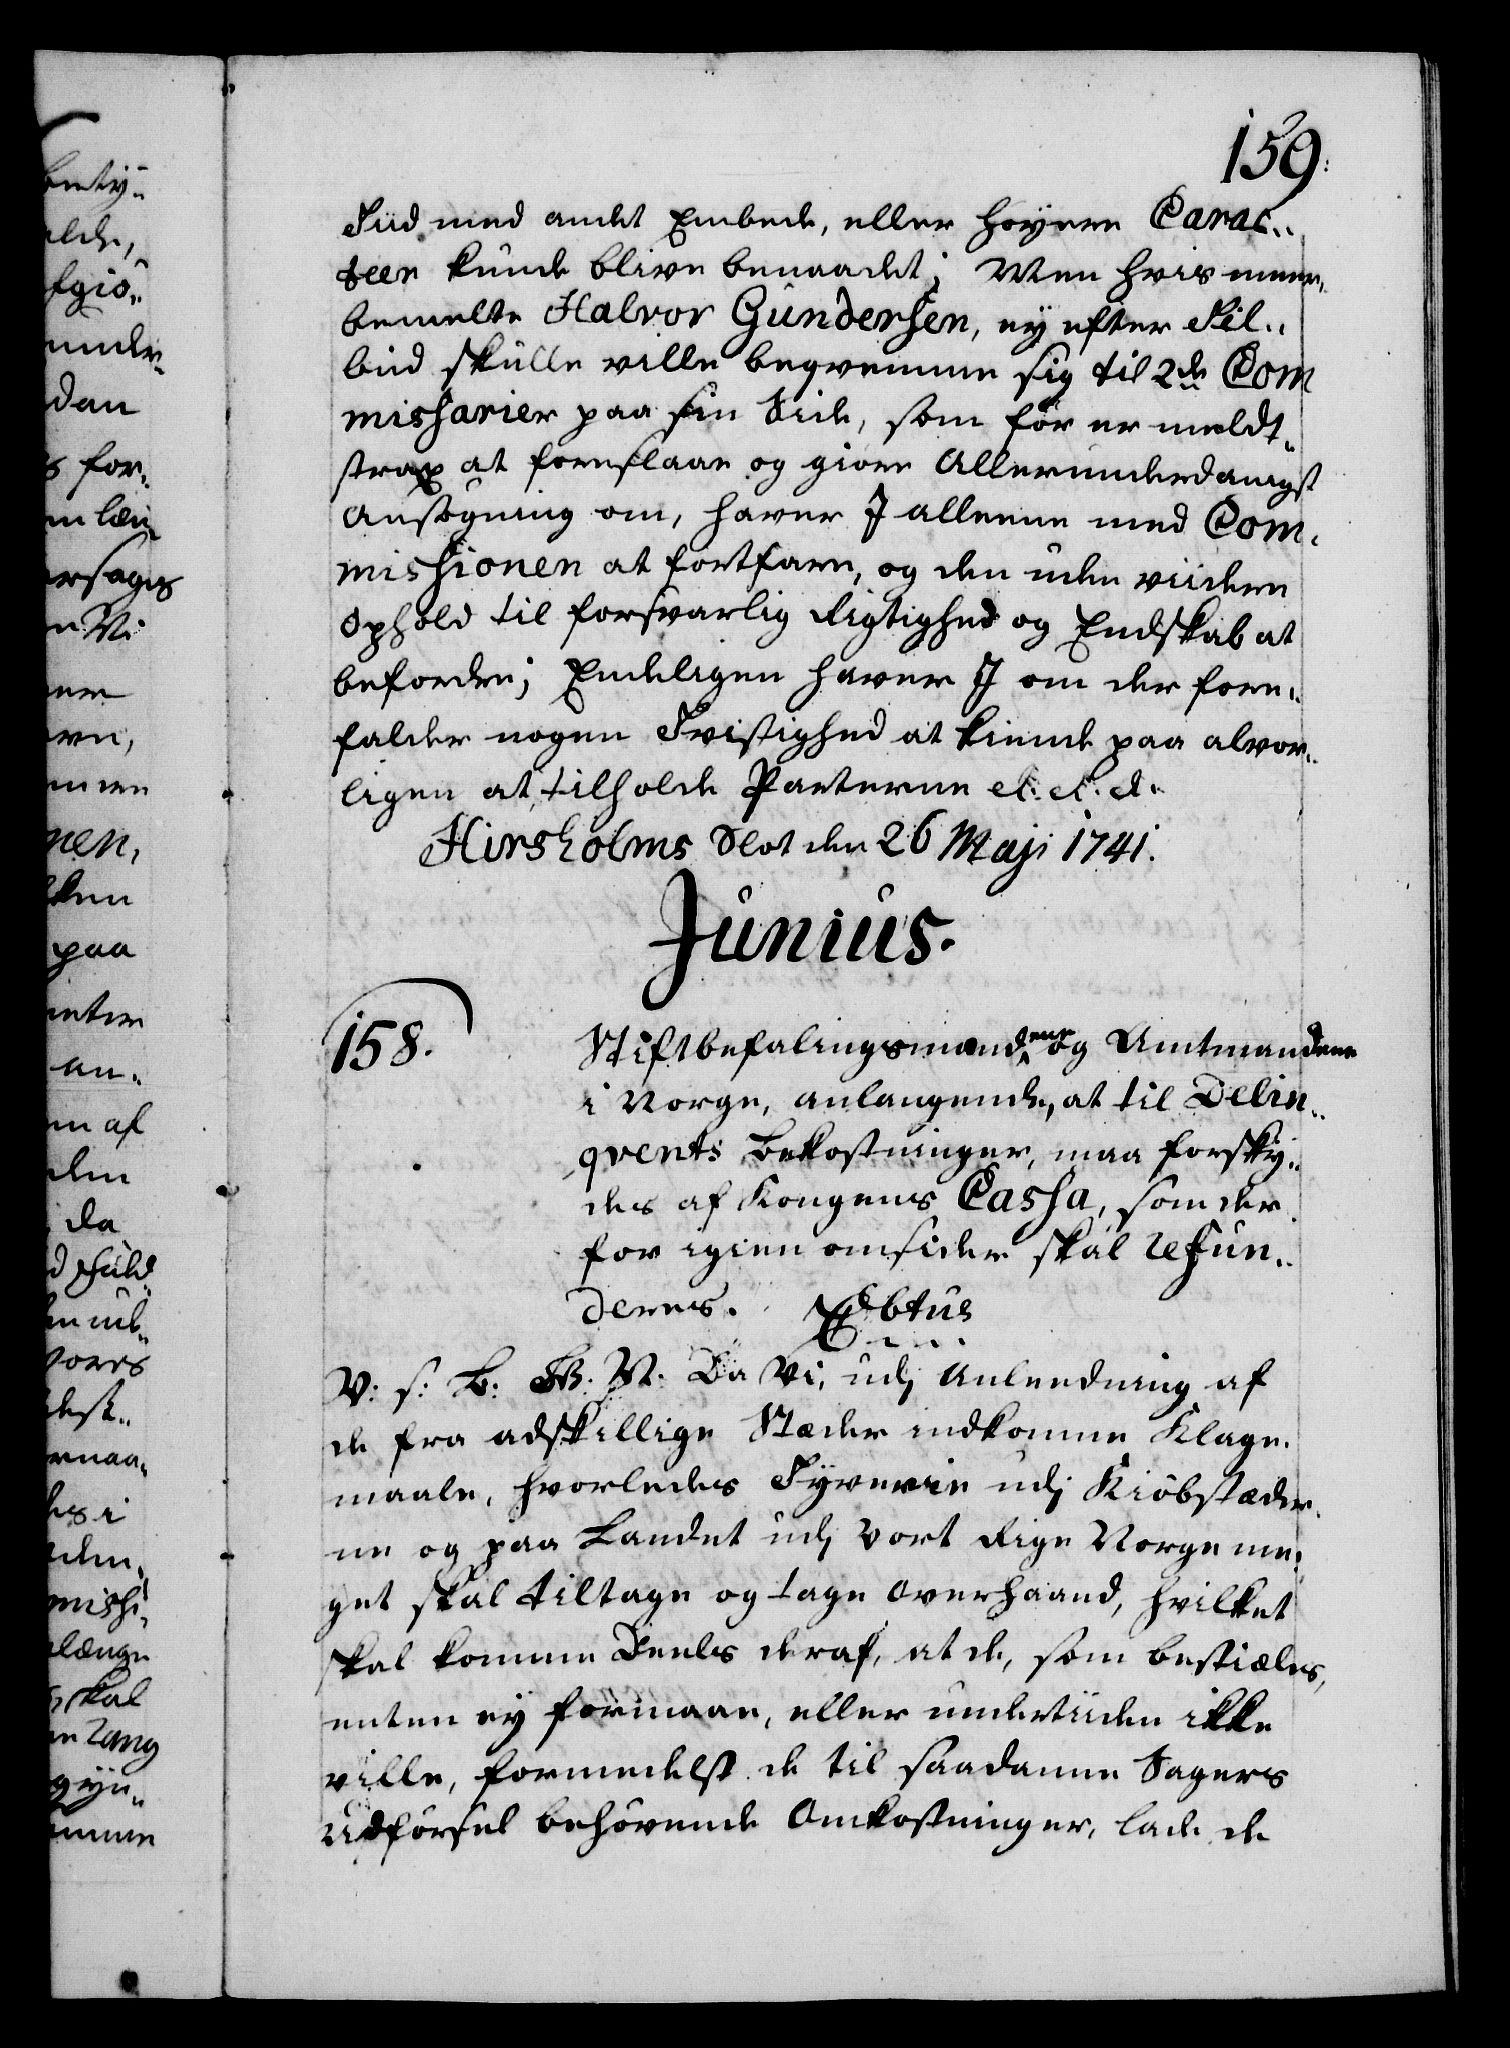 159.
Tiid med andet Embede, eller høyere Carac„
teer kunde blive benaadet; Men hvis meer„
bemelte Halvor Gundersen, ey efter Til„
bud skulle ville beqvemme sig til 2de Com
missarier paa sin Side, som før er meldt„
strax at foreslaae og giøre Allerunderdanigst
Ansøgning om, haver I alleene med Com„
missionen at fortfare, og den uden viidere
Ophold til forsvarlig Rigtighed og Endskab at
befordre; Endeligen haver I om der fore„
falder nogen Tvistighed at kiende paa alvor„
ligen at tilholde Parterne
Hirsholms Slot den 26 Maji 1741.
Junius.
158.
Stiftbefalingsmændene og Amtmændene
i Norge, anlangende, at til Delin„
qvents Bekostninger, maa forsky„
des af Kongens Cassa, som der
for igien omsider skal refun„
deres.
V: s: B: G. V. Da Vi, udj Anleedning af
de fra adskillige Stæder indkomne Klage„
maale, hvorledes Tyverie udj Kiøbstæder„
ne og paa Landet udj vort Rige Norge me„
get skal tiltage og tage Overhaand, hvilket
skal komme Deels deraf, at de, som bestiæles,
enten ey formaae, eller undertiiden ikke
ville, formedelst de til saadanne Sagers
Udførsel behøvende Omkostninger, lade de
for„
da
af
paa
skal